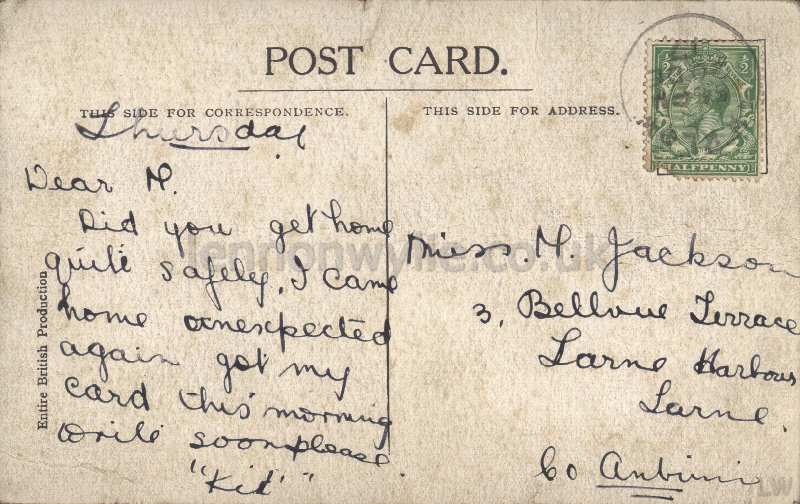 POST CARD.
THIS SIDE FOR CORRESPONDENCE.
THIS SIDE FOR ADDRESS.
Thursday
Dear M.
Did you get home
quite safely, I came
home unexpected
again got my
card this morning
write soon please
"Kid"
Entire British Production
Miss. M. Jackson
3, Bellvue Terrace
Larne Harbour
Larne.
Co Antrim
½ ½
HALFPENNY
lennonwylie.co.uk
LW